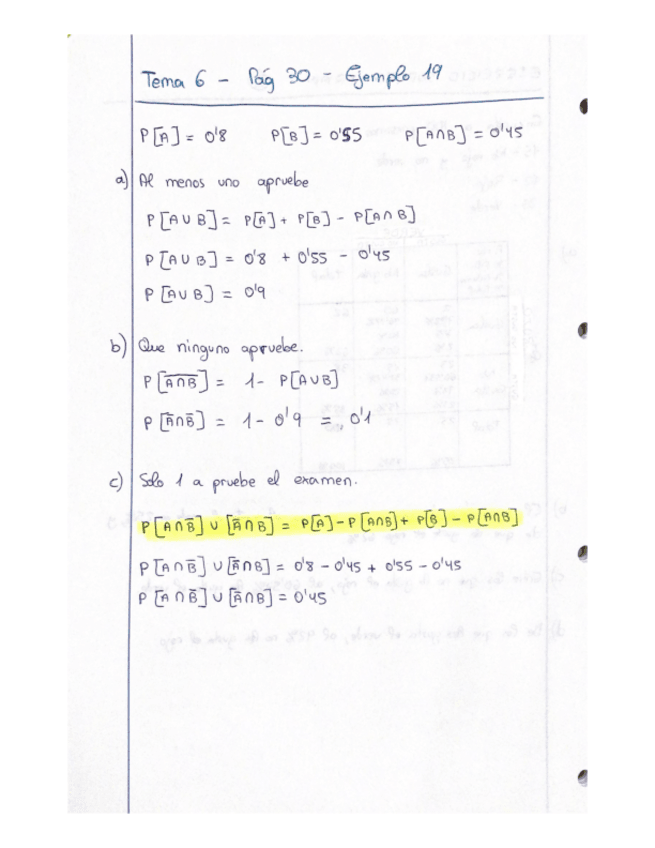 Tema 6 - Pág 30 - Ejemplo 19
P[A] = 0'8 P[B] = 0'55 P[A∩B] = 0'45
a) Al menos uno apruebe
P[A∪B] = P[A] + P[B] - P[A∩B]
P[A∪B] = 0'8 + 0'55 - 0'45
P[A∪B] = 0'9
b) Que ninguno apruebe.
P[A̅∩̅B̅] = 1 - P[A∪B]
P[A̅∩B̅] = 1 - 0'9 = 0'1
c) Solo 1 a pruebe el examen.
P[A∩B̅] ∪ [A̅∩B] = P[A] - P[A∩B] + P[B] - P[A∩B]
P[A∩B̅] ∪ [A̅∩B] = 0'8 - 0'45 + 0'55 - 0'45
P[A∩B̅] ∪ [A̅∩B] = 0'45